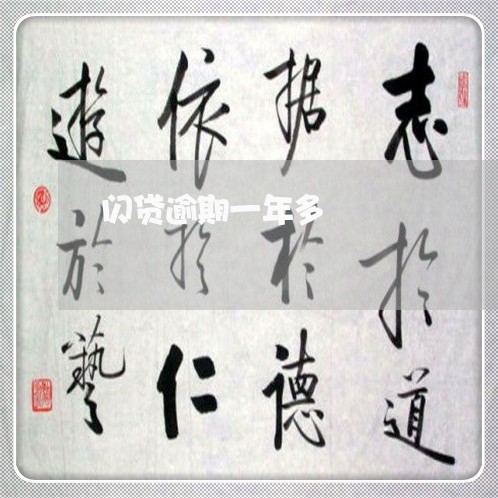 志於道
据於德
依於仁
遊於藝
闪贷逾期一年多